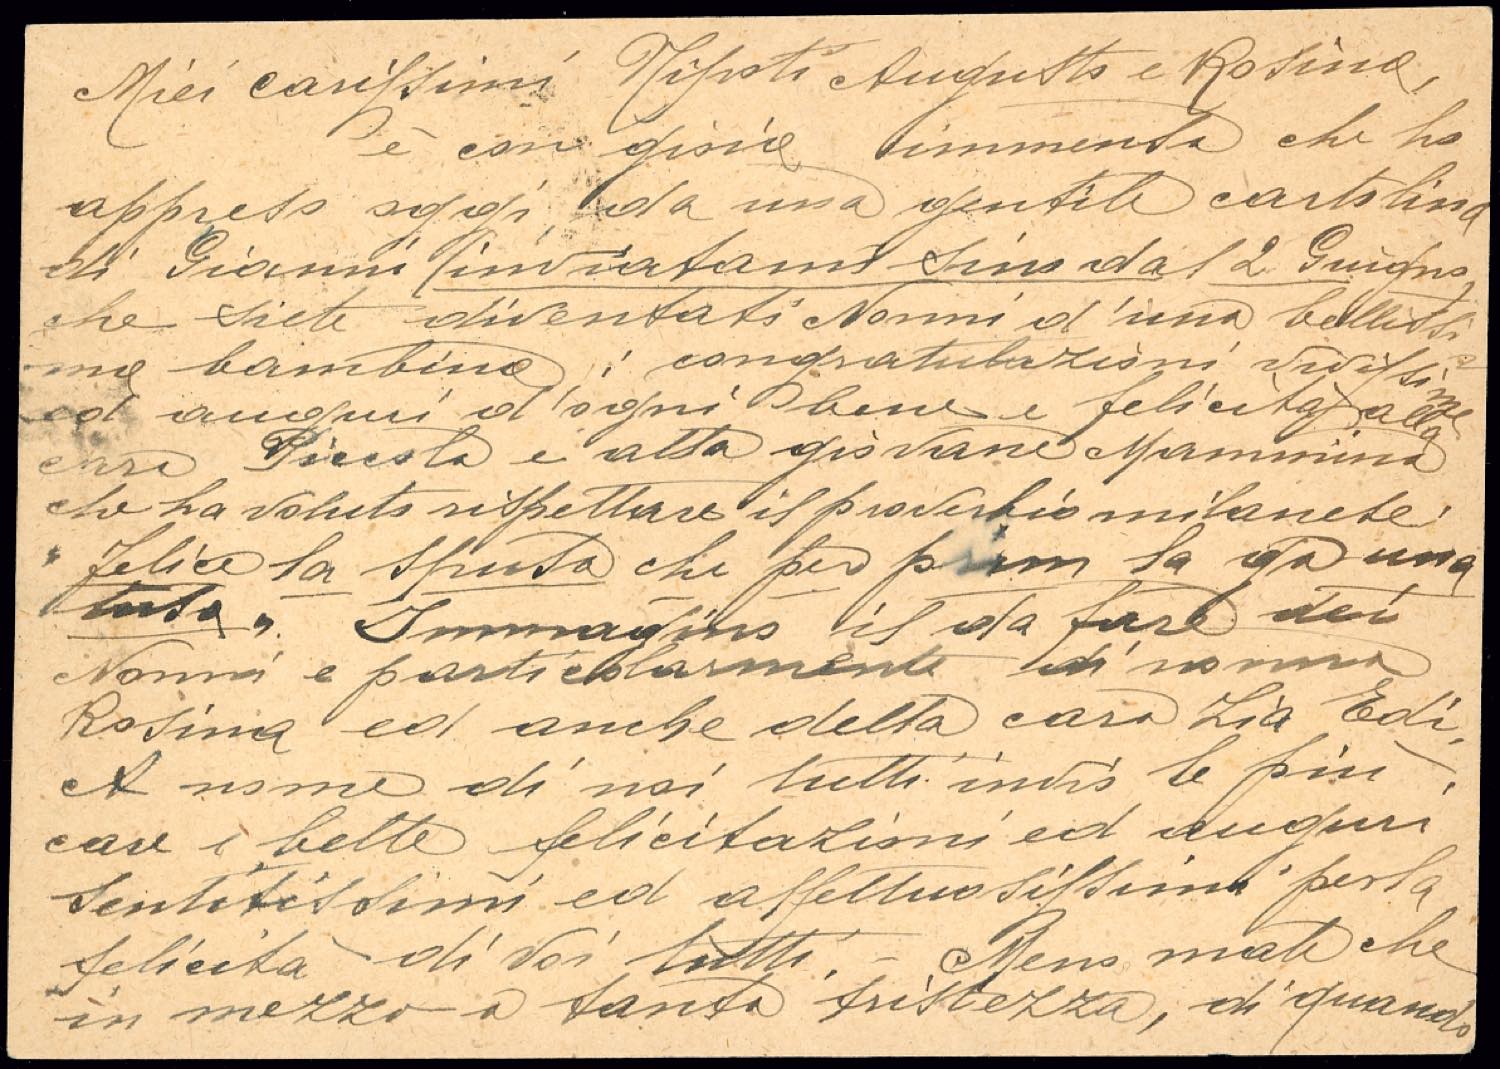 Miei carissimi Nipoti Augusto e Rosina,
è con gioia immensa che ho
appreso oggi, da una gentile cartolina
di Gianni (inviatami sino dal 2 Giugno,
che siete diventati Nonni d'una bellissi
ma bambina; congratulazioni vivissime
ed auguri d'ogni bene e felicità alla
cara Piccola e alla giovane Mammina
che ha voluto rispettare il proverbio milanese:
"felice la spusa che per prim la gà una
tusa". Immagino il da fare dei
Nonni e particolarmente di nonna
Rosina ed anche della cara Zia Edi.
A nome di noi tutti invio le più
care e belle felicitazioni ed auguri
sentitissimi ed affettuosissimi per la
felicità di voi tutti. - Meno male che
in mezzo a tanta tristezza, di quando